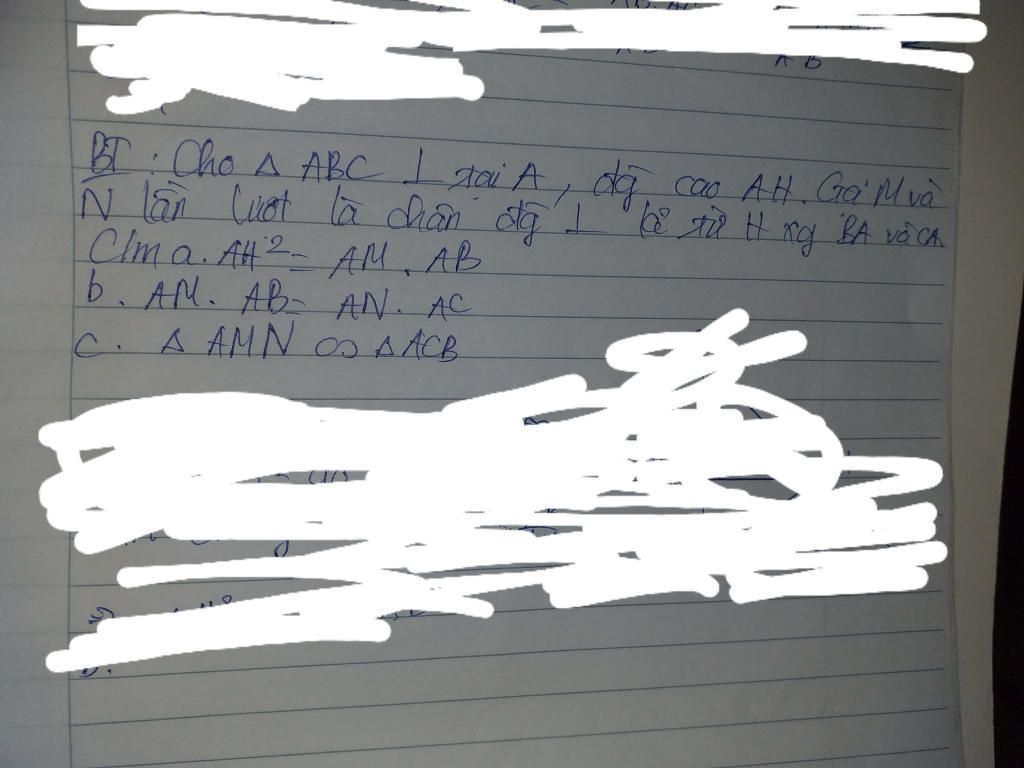 BT : Cho △ ABC ⊥ tại A, đg cao AH. Gọi M và
N lần lượt là chân đg ⊥ kẻ từ H xg BA và CA
C/m a. AH² = AM . AB
b. AM. AB = AN. AC
c. △ AMN ∽ △ ACB